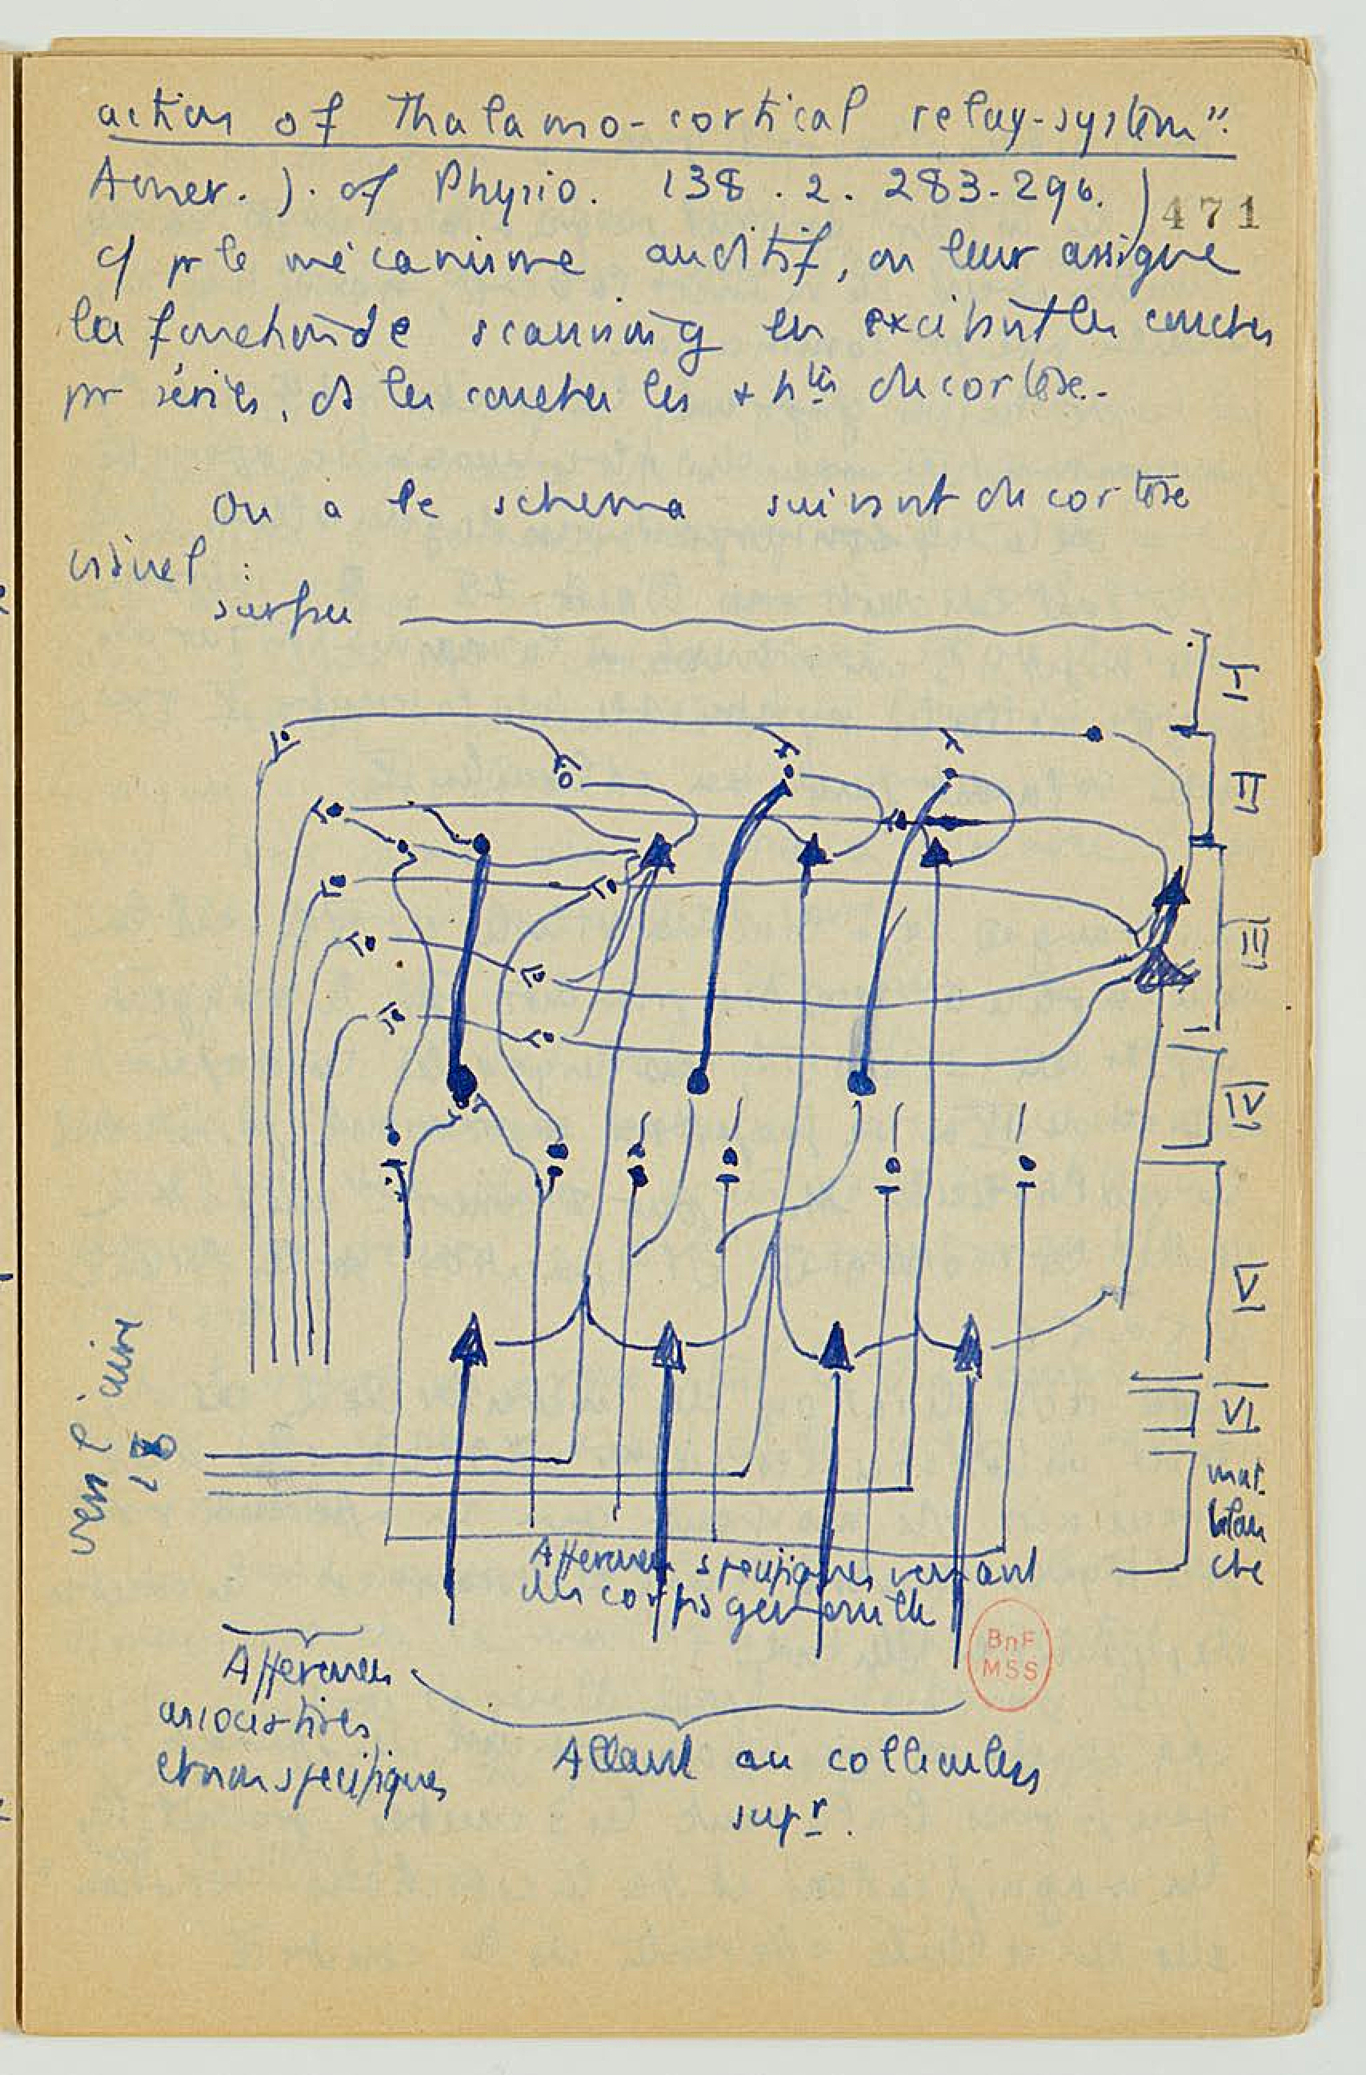 action of Thalamo-cortical relay-system".
Amer. J. of Physio. 138. 2. 283-296. )
471
c/ pr le mécanisme auditif, on leur assigne
la fonction de scanning en excitant les couches
pr séries, ds les couches les + htes du cortex.
On a le schema suivant du cortex
visuel :
surface
I
II
III
IV
V
VI
mat.
blan
che
vers l'aire
18
Afferences spécifiques venant
du corps genouillé
BnF
MSS
Afferences
associatives
et non spécifiques
Allant au colliculus
supr.